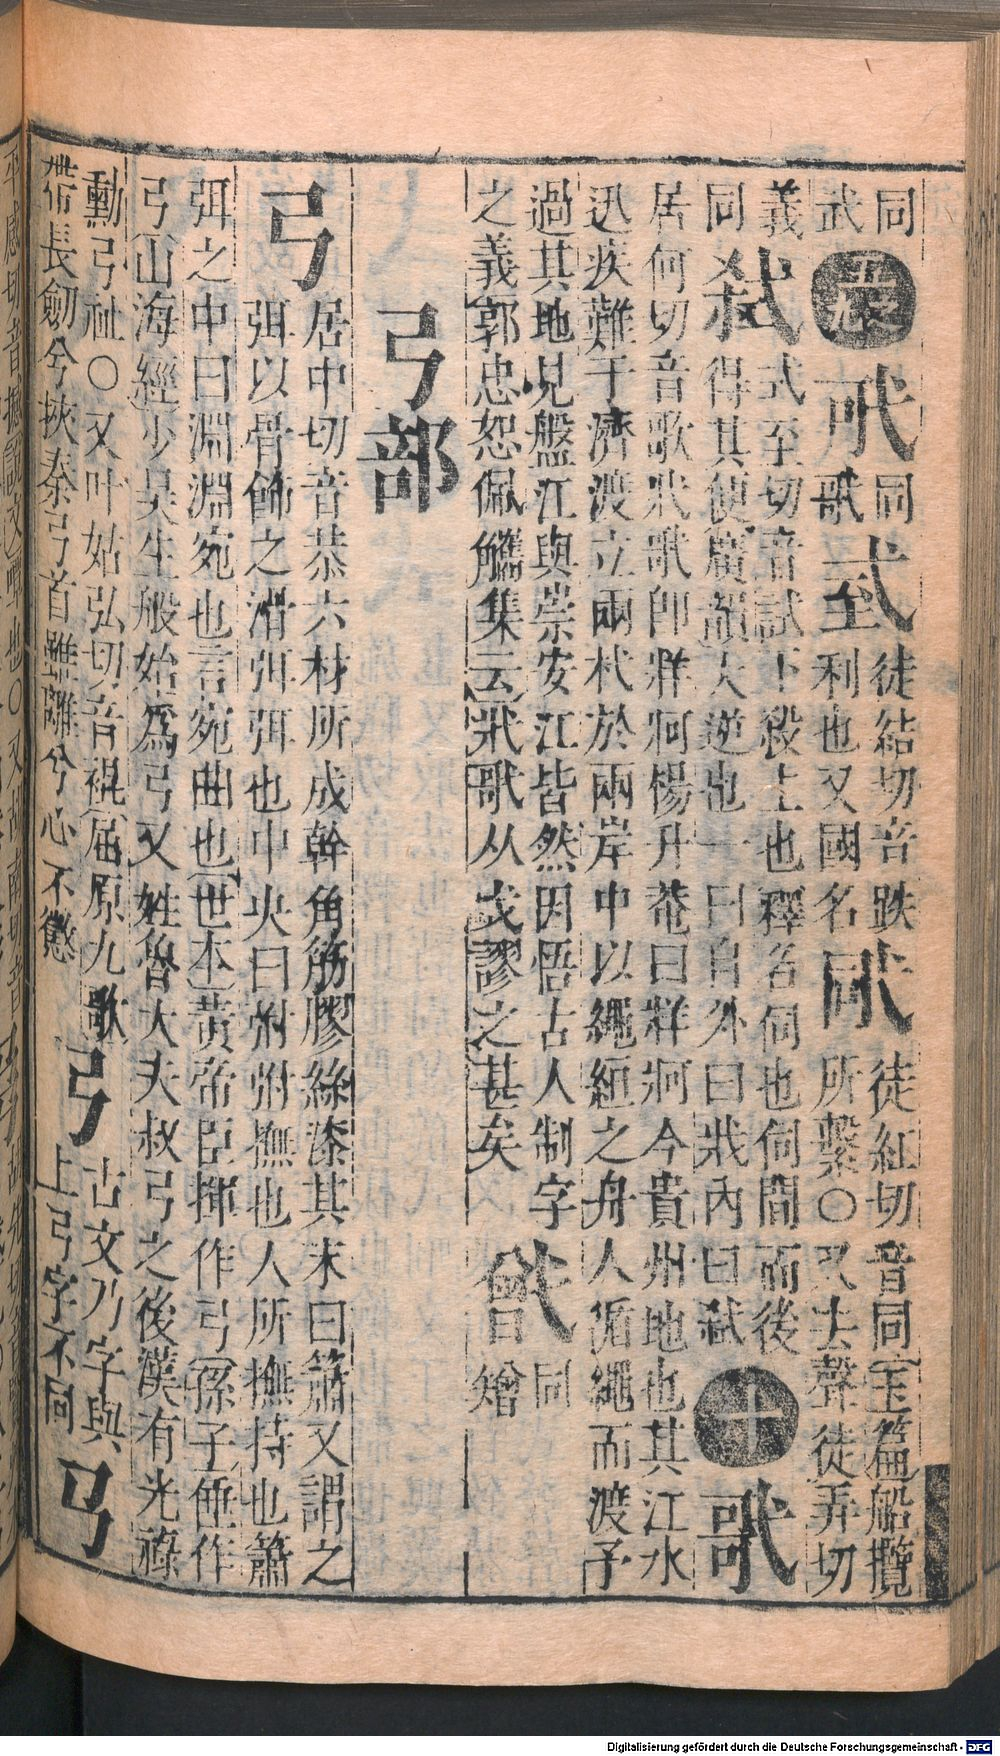 同 同 徒結切音跌 徒紅切音同玉篇船攬
武 歌 㢼 利也又國名 所繫○又去聲徒弄切
義 式至切音試下殺上也釋名伺也伺間而後
同 弑 得其便廣韻大逆也一曰自外曰戕內曰弑 十
居何切音歌牂歌郎牂牁楊升菴曰牂牁今貴州地也其江水
迅疾難于濟渡立兩杙於兩岸中以繩絙之舟人循繩而渡予
過其地見盤江與崇安江皆然因悟古人制字 同
之義郭忠恕佩觿集云牂歌从戈謬之甚矣 矰
弓部
弓 居中切音恭六材所成幹角筋膠絲漆其末曰簫又謂之
弭以骨飾之滑弭弭也中央曰弣弣撫也人所撫持也簫
弭之中曰淵淵宛也言宛曲也世本黃帝臣揮作弓孫子倕作
弓山海經少昊生般始爲弓又姓魯大夫叔弓之後漢有光祿
勳弓祉○又叶姑弘切音裩屈原九歌 弓 古文乃字與
帶長劒兮挾秦弓首雖離兮心不懲 上弓字不同
Digitalisierung gefördert durch die Deutsche Forschungsgemeinschaft - DFG